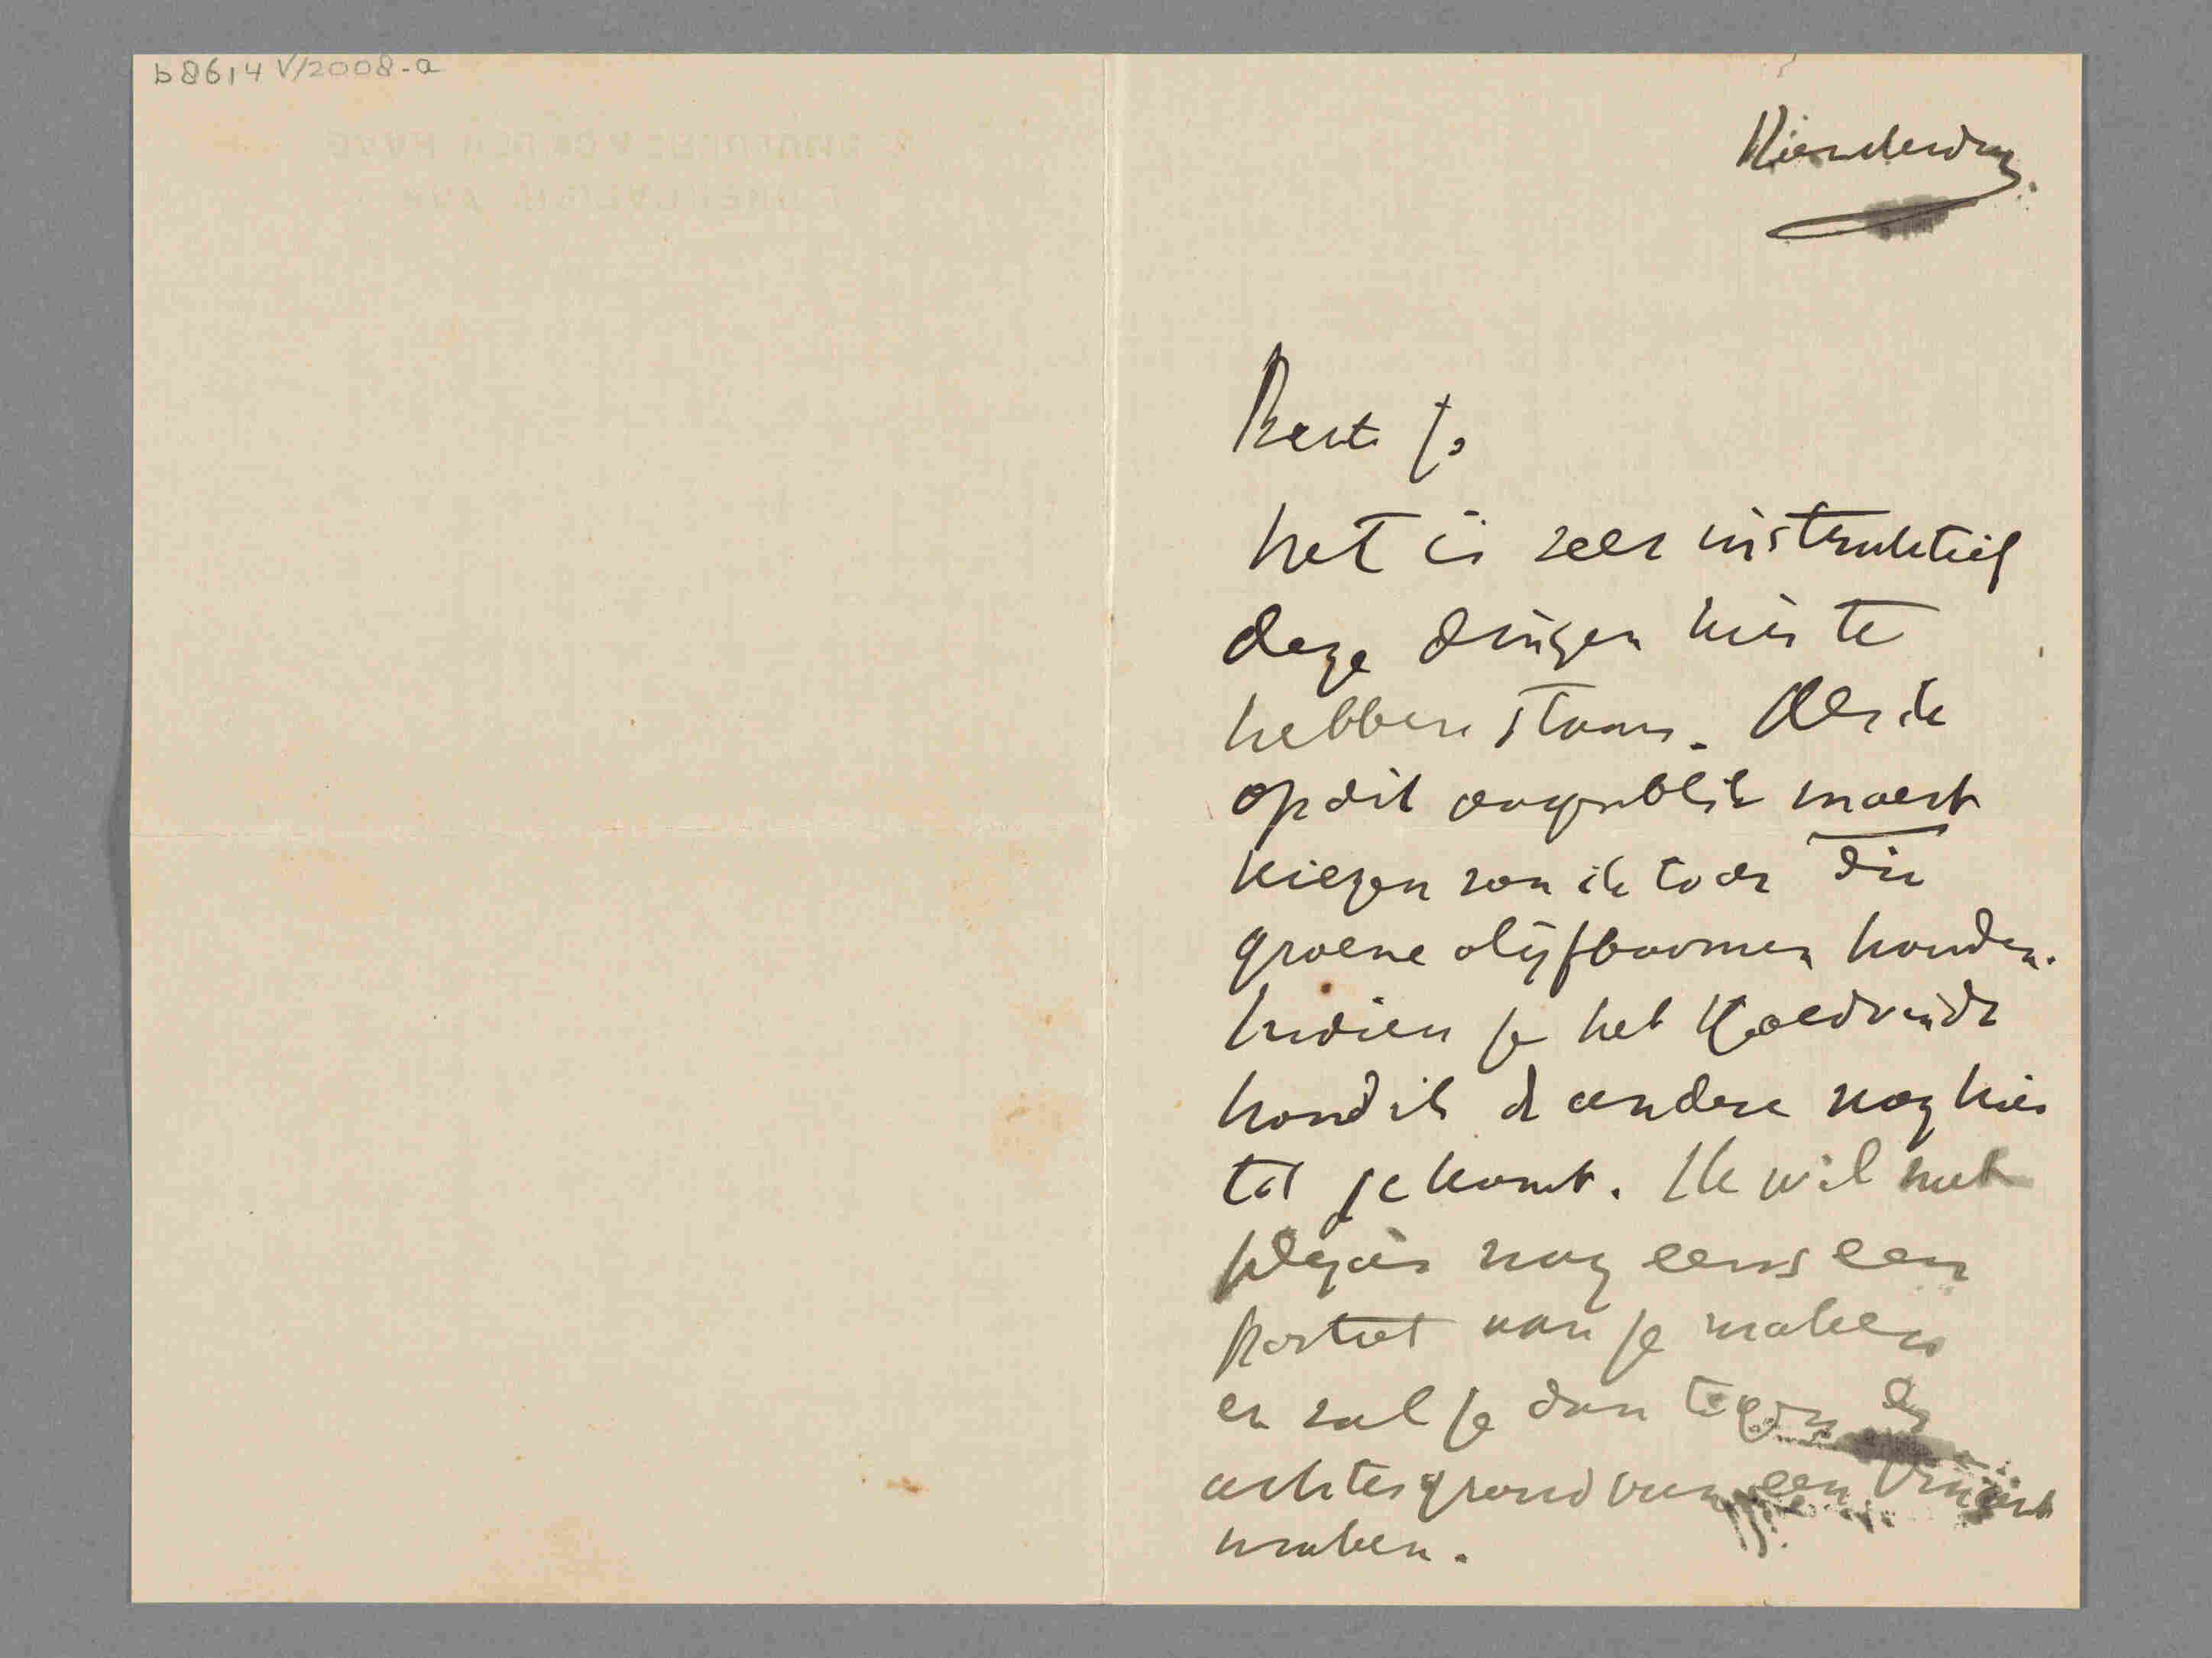 b8614 V/2008-a
Donderdag.
Beste Jo
het is zeer instruktief
deze dingen hier te
hebben staan. Als ik
op dit oogenblik moest
kiezen zou ik toch die
groene olijfboomen houden.
Indien je het goedvindt
houd ik de andere nog hier
tot je komt. Ik wil met
plezier nog eens een
portret van je maken
en zal je dan tegen de
achtergrond van een Vincent
maken.